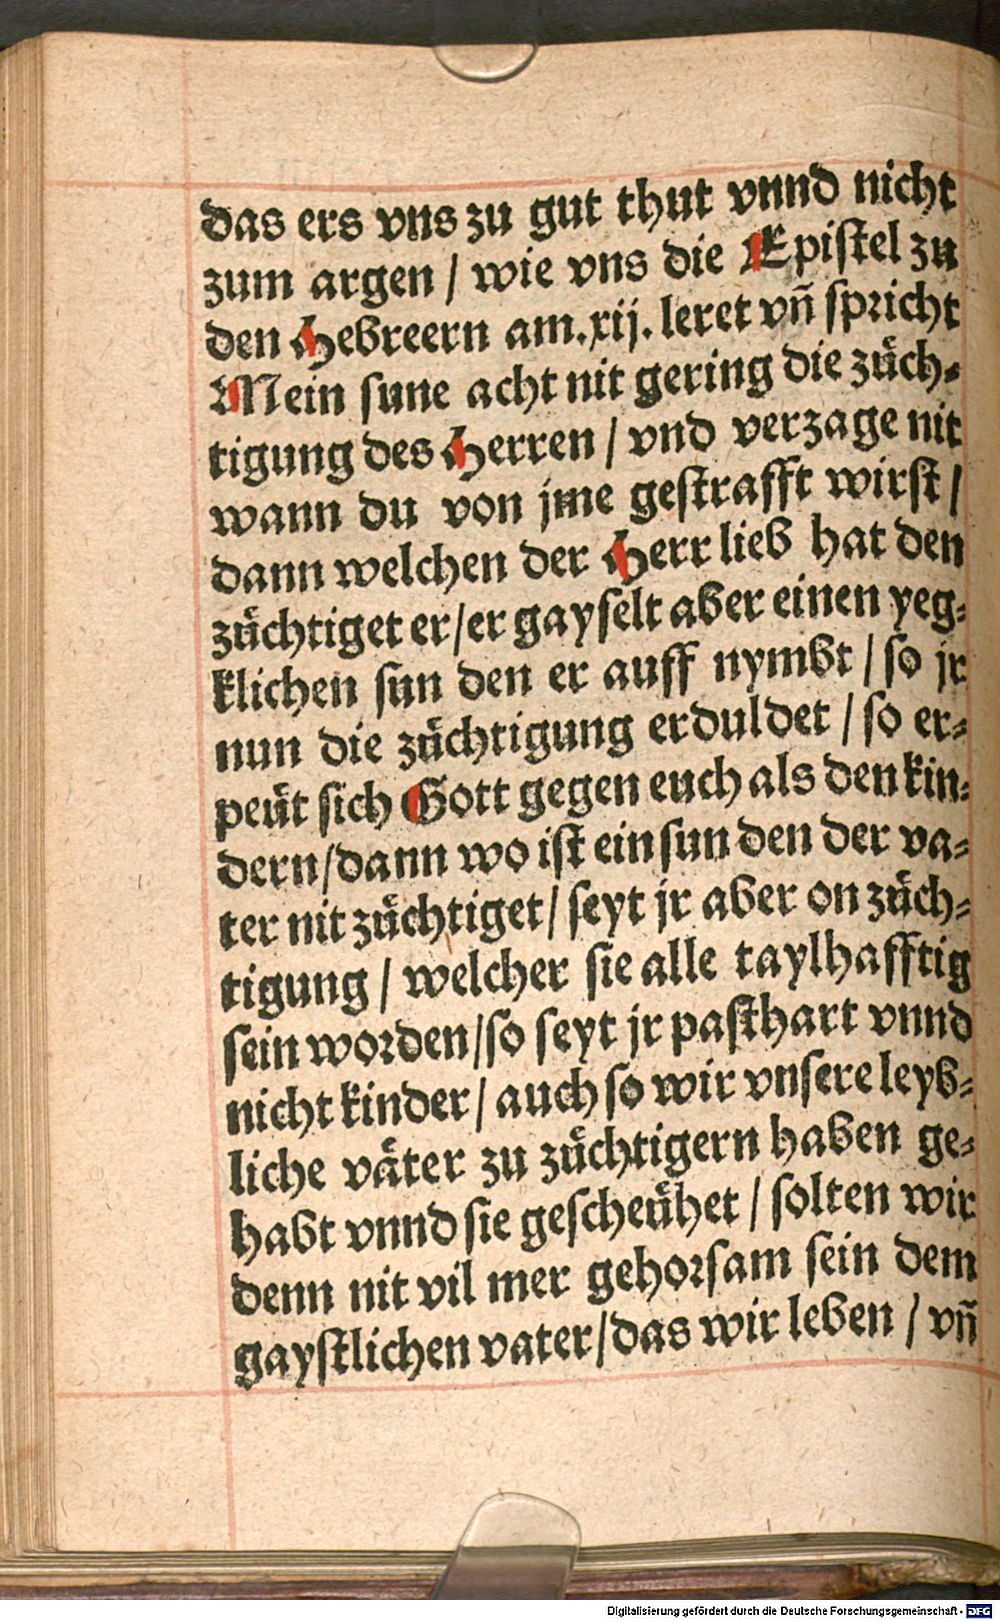 das ers vns zu gut thut vnnd nicht
zum argen / wie vns die Epistel zu
den Hebreern am .xij. leret vñ spricht
Mein sune acht nit gering die züch-
tigung des Herren / vnd verzage nit
wann du von jme gestrafft wirst /
dann welchen der Herr lieb hat den
züchtiget er / er gayselt aber einen yeg-
klichen sun den er auff nymbt / so jr
nun die züchtigung erduldet / so er-
peüt sich Gott gegen euch als den kin-
dern / dann wo ist ein sun den der va-
ter nit züchtiget / seyt jr aber on züch-
tigung / welcher sie alle taylhafftig
sein worden / so seyt jr pasthart vnnd
nicht kinder / auch so wir vnsere leyb-
liche väter zu züchtigern haben ge-
habt vnnd sie gescheühet / solten wir
denn nit vil mer gehorsam sein dem
gaystlichen vater / das wir leben / vñ
Digitalisierung gefördert durch die Deutsche Forschungsgemeinschaft - DFG